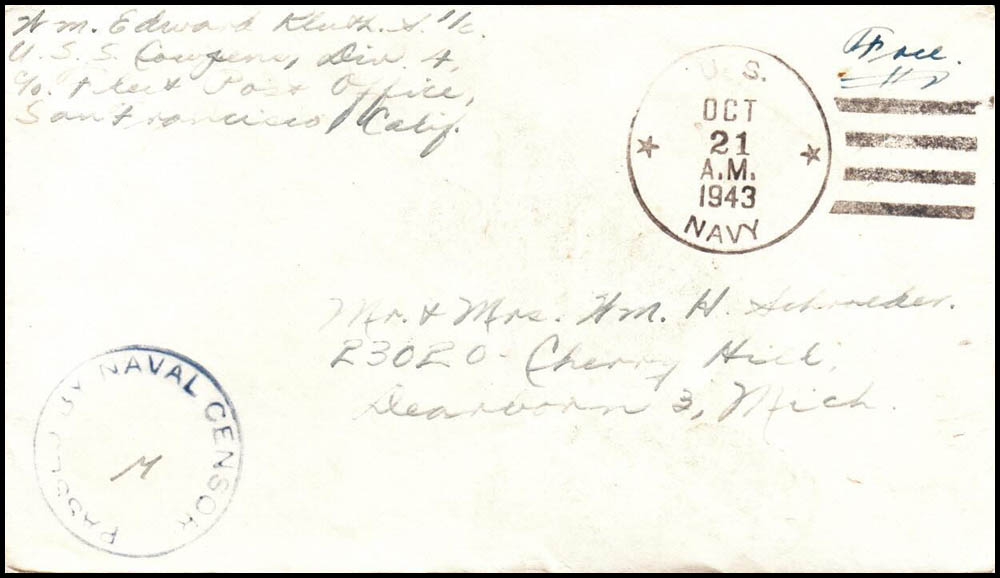 Wm. Edward Kluth. S. 1/c.
U. S. S. Cowpens, Div. 4,
c/o. Fleet Post Office,
San Francisco, Calif.
Free.
U. S.
OCT
21
A.M.
1943
NAVY
Mr. & Mrs. Wm. H. Schroeder.
23020 - Cherry Hill,
Dearborn 3, Mich.
PASSED BY NAVAL CENSOR
M